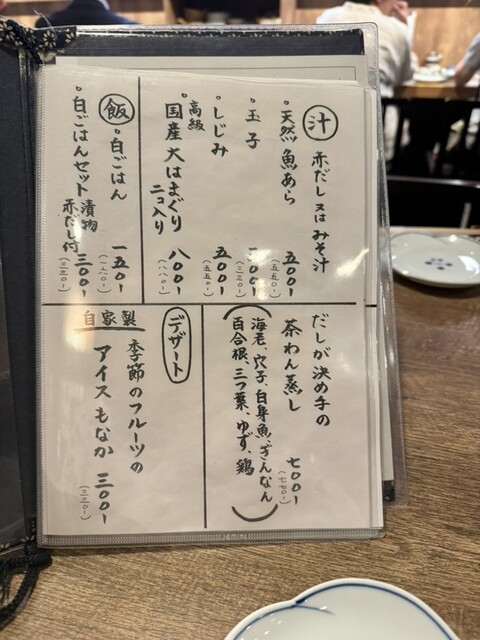 汁 赤だし又はみそ汁
・天然魚あら 五〇〇-
(五五〇-)
・玉子 三〇〇-
(三三〇-)
・しじみ 五〇〇-
(五五〇-)
・高級
国産大はまぐり 八〇〇-
二コ入り (八八〇-)
飯
・白ごはん 一五〇-
・白ごはんセット 漬物
赤だし付 三〇〇-
(三三〇-)
だしが決め手の
茶わん蒸し 七〇〇-
(七七〇-)
(海老、穴子、白身魚、ぎんなん
百合根、三つ葉、ゆず、鶏)
デザート
季節のフルーツの
アイスもなか 三〇〇-
(三三〇-)
自家製